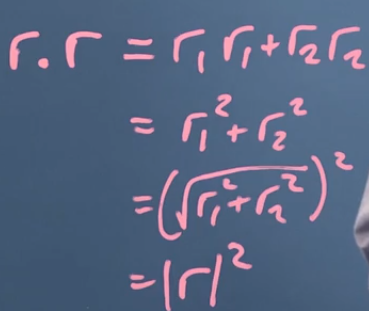 r.r = r₁ r₁ + r₂ r₂
= r₁² + r₂²
= (√(r₁² + r₂²))²
= |r|²